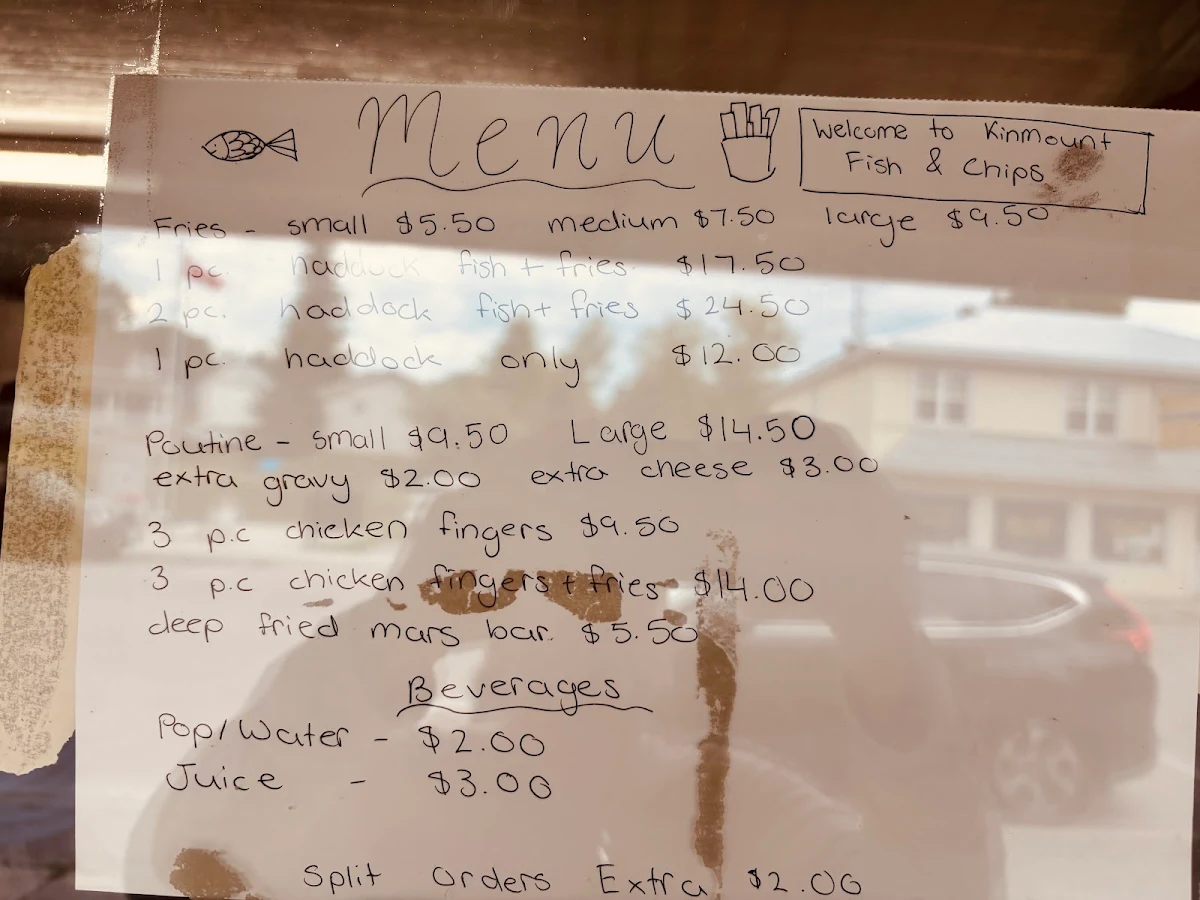 Menu
Welcome to Kinmount
Fish & Chips
Fries - small $5.50 medium $7.50 large $9.50
1 pc. haddock fish + fries $17.50
2 pc. haddock fish + fries $24.50
1 pc. haddock only $12.00
Poutine - small $9.50 Large $14.50
extra gravy $2.00 extra cheese $3.00
3 p.c chicken fingers $9.50
3 p.c chicken fingers + fries $14.00
deep fried mars bar. $5.50
Beverages
Pop/Water - $2.00
Juice - $3.00
Split Orders Extra $2.00